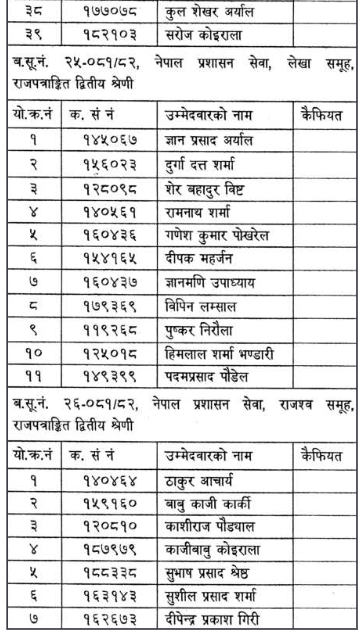 ३८ १७७०७८ कुल शेखर अर्याल
३९ १८२१०३ सरोज कोइराला
ब.सू.नं. २५-०८१/८२, नेपाल प्रशासन सेवा, लेखा समूह,
राजपत्राङ्कित द्वितीय श्रेणी
यो.क्र.नं क. सं नं उम्मेदवारको नाम कैफियत
१ १४५०६७ ज्ञान प्रसाद अर्याल
२ १५६०२३ दुर्गा दत्त शर्मा
३ १२८०९८ शेर बहादुर विष्ट
४ १४०५६१ रामनाय शर्मा
५ १६०४३६ गणेश कुमार पोखरेल
६ १५४१६५ दीपक महर्जन
७ १६०४३७ ज्ञानमणि उपाध्याय
८ १७९३६९ विपिन लम्साल
९ ११९२६८ पुष्कर निरौला
१० १२५०१८ हिमलाल शर्मा भण्डारी
११ १४९३९९ पदमप्रसाद पौडेल
ब.सू.नं. २६-०८१/८२, नेपाल प्रशासन सेवा, राजश्व समूह,
राजपत्राङ्कित द्वितीय श्रेणी
यो.क्र.नं क. सं नं उम्मेदवारको नाम कैफियत
१ १४०४६४ ठाकुर आचार्य
२ १५९१६० बाबु काजी कार्की
३ १२०८१० काशीराज पौड्याल
४ १८७९७९ काजीबाबु कोइराला
५ १८८३३८ सुभाष प्रसाद श्रेष्ठ
६ १६३१४३ सुशील प्रसाद शर्मा
७ १६२६७३ दीपेन्द्र प्रकाश गिरी